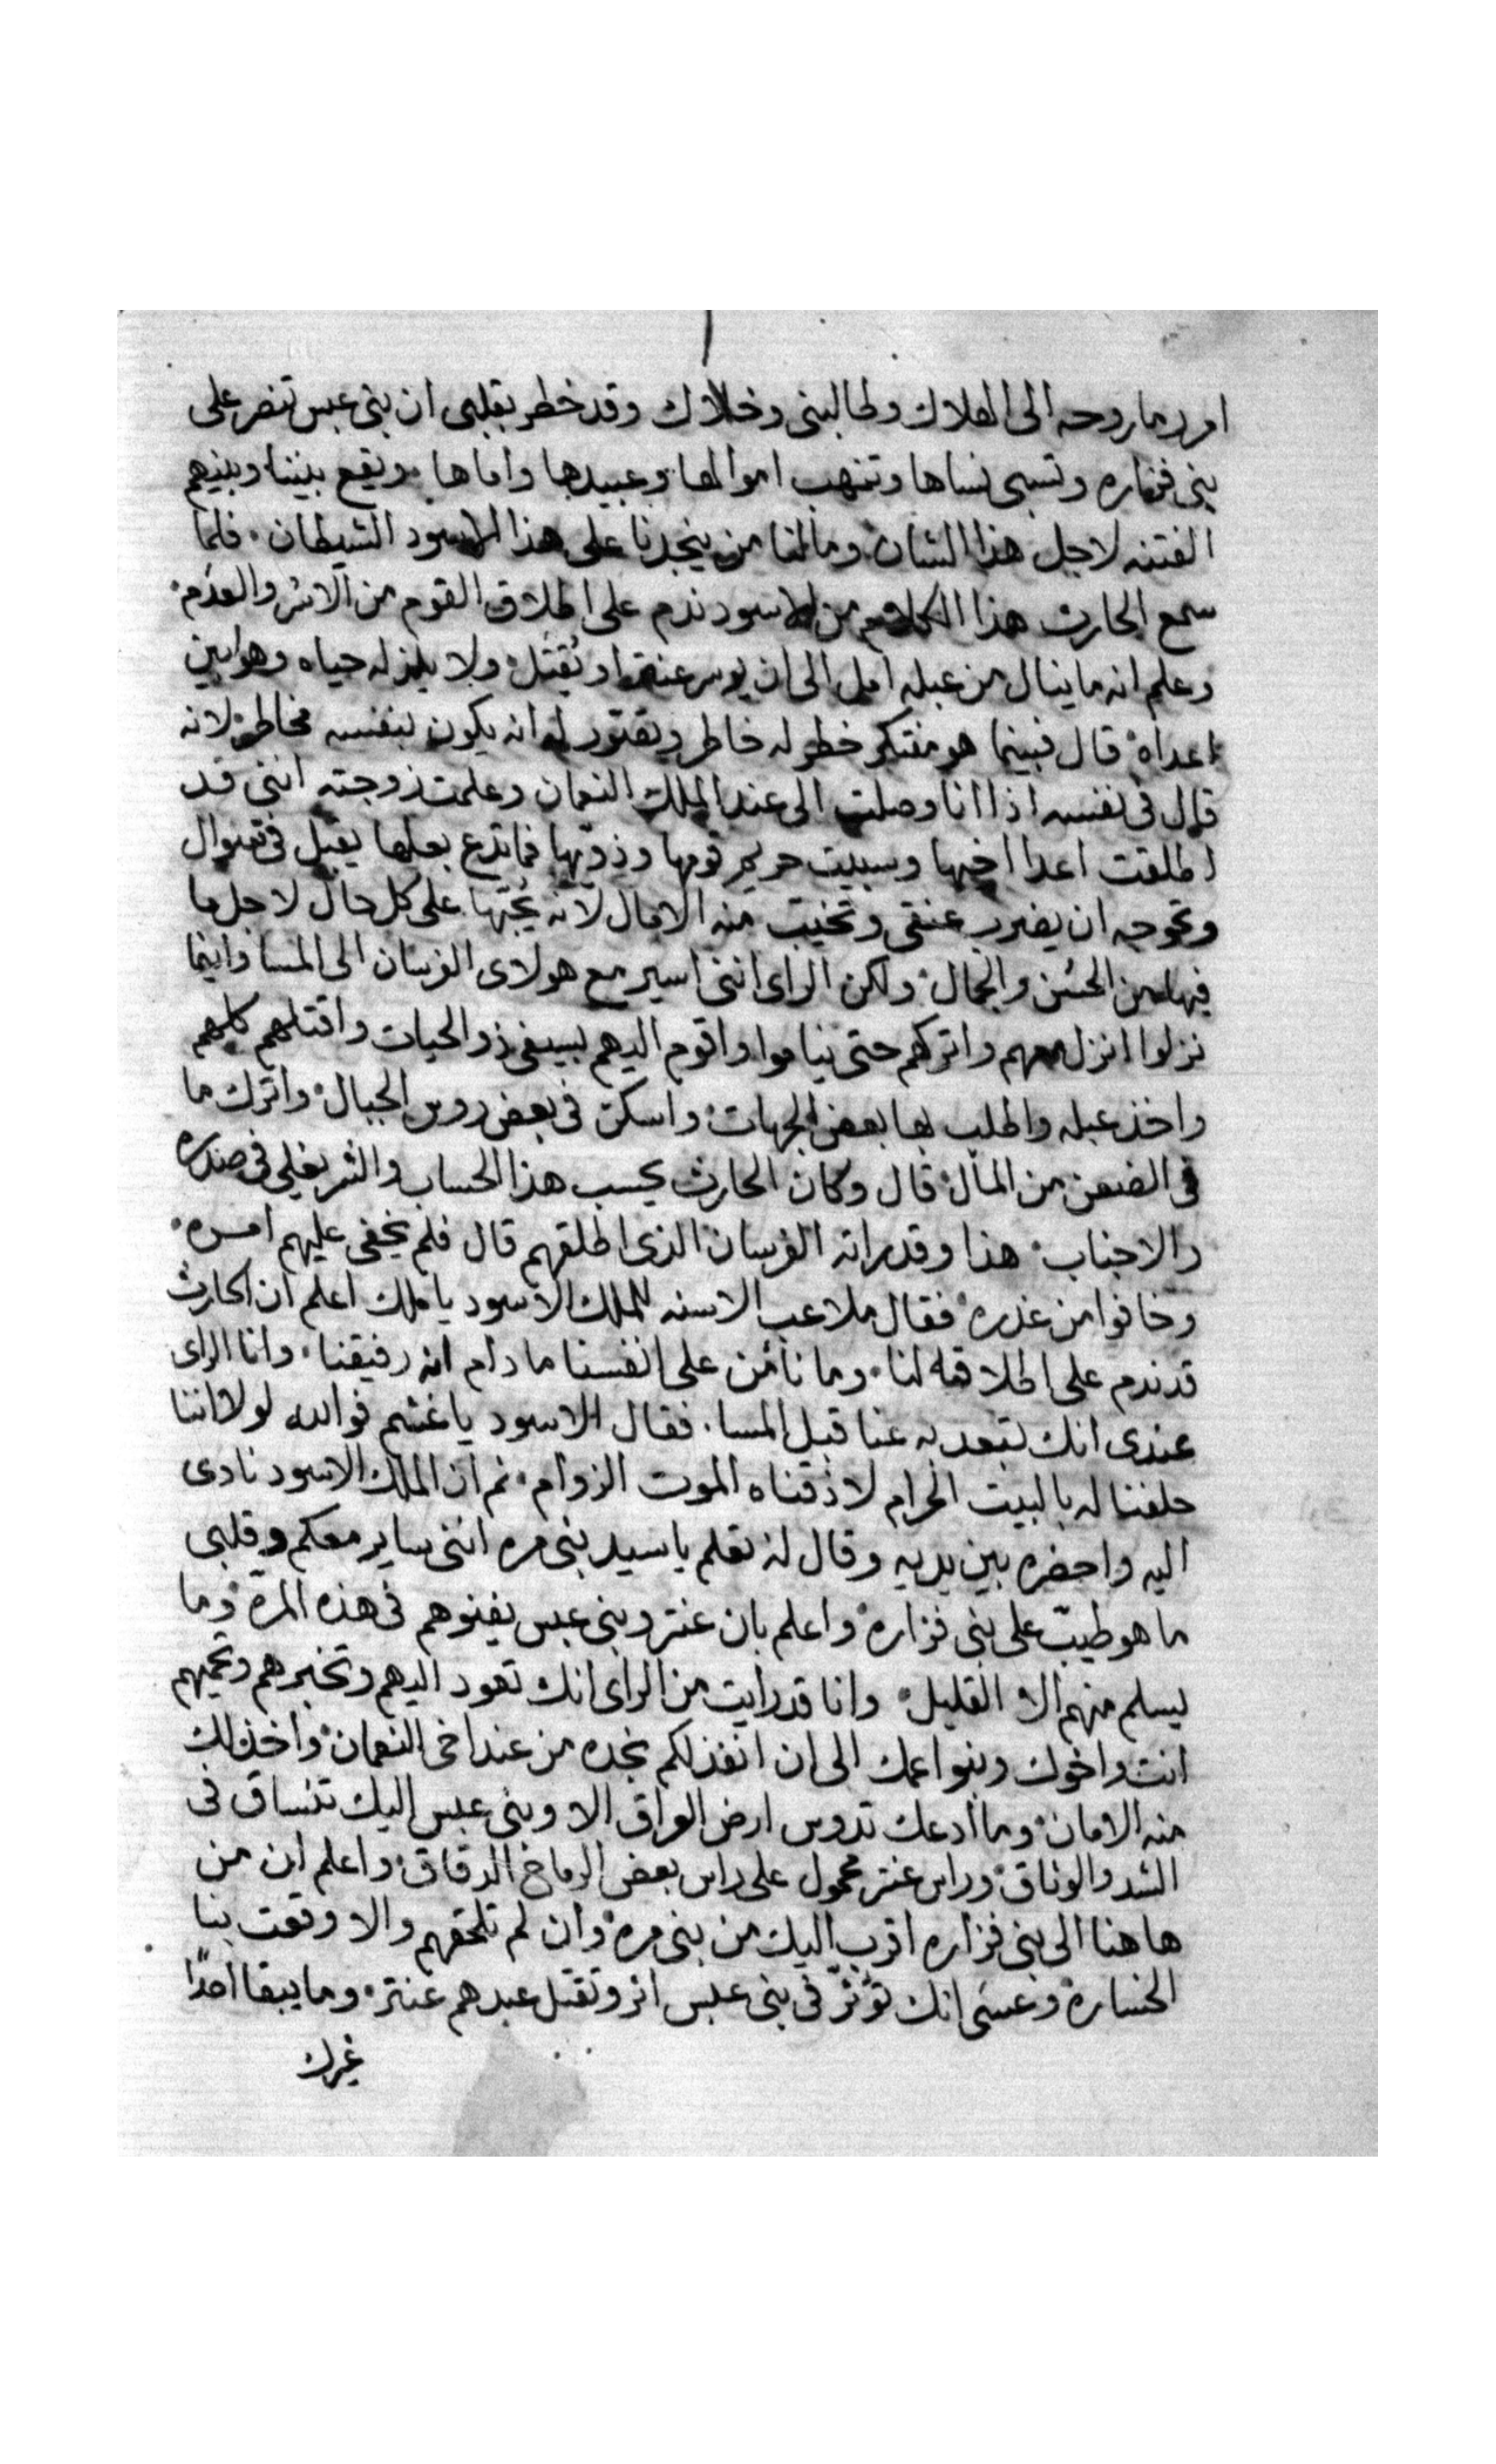 اورد ما روحه الى الهلاك وطالبنى وخلاك وقد خطر بقلبى ان بنى عبس تنصر على
بنى فزاره وتسبى نساها وتنهب اموالها وعبيدها واماها ويقع بيننا وبينهم
الفتنه لاجل هذا الشان وما لنا من ينجدنا على هذا الاسود الشيطان فلما
سمع الحارث هذا الكلام من الاسود ندم على اطلاق القوم من الاسر والعدم
وعلم انه ما ينال من عبله امل الى ان يوسر عنتر او يقتل ولا يلذ له حياه وهو بين
اعداه قال فبينما هو مفتكر خطر له خاطر وتصور له انه يكون بنفسه مخاطر لانه
قال فى نفسه اذا انا وصلت الى عند الملك النعمان وعلمت زوجته اننى قد
اطلقت اعدا اخيها وسبيت حريم قومها وذويها فما تدع بعلها يقبل فى سوال
وتحوجه ان يضرب عنقى وتخيب منه الامال لانه يحبها على كل حال لاجل ما
فيها من الحسن والجمال ولكن الراى اننى اسير مع هولاى الفرسان الى المسا واينما
نزلوا انزل معهم واتركهم حتى يناموا واقوم اليهم بسيفى ذو الحيات واقتلهم كلهم
واخذ عبله واطلب بها بعض الجهات واسكن فى بعض روس الجبال واترك ما
فى الضعن من المال قال وكان الحارث يحسب هذا الحساب والشر يغلى فى صدره
والاجناب هذا وقد راته الفرسان الذى اطلقهم قال فلم يخفى عليهم امره
وخافوا من غدره فقال ملاعب الاسنه للملك الاسود يا ملك اعلم ان الحارث
قد ندم على اطلاقه لنا وما نامن على انفسنا ما دام انه رفيقنا وانا الراى
عندى انك تبعد به عنا قبل المسا فقال الاسود يا غشم فوالله لولا اننا
حلفنا له بالبيت الحرام لاذقناه الموت الزوام ثم ان الملك الاسود نادى
اليه واحضره بين يديه وقال له تعلم يا سيد بنى مره اننى ساير معكم وقلبى
ما هو طيب على بنى فزاره واعلم بان عنتر وبنى عبس يفنوهم فى هذه المره وما
يسلم منهم الا القليل وانا قد رايت من الراى انك تعود اليهم وتخبرهم وتحميهم
انت واخوك وبنوا عمك الى ان انفذ لكم نجده من عند اخى النعمان واخذ لك
منه الامان وما ادعك تدوس ارض العراق الا وبنى عبس اليك تنساق فى
الشد والوثاق وراس عنتر محمول على راس بعض الرماح الدقاق واعلم ان من
هاهنا الى بنى فزاره اقرب اليك من بنى مره وان لم تلحقهم والا وقعت بنا
الخساره وعسى انك توثر فى بنى عبس اثر وتقتل عبدهم عنتر وما يبقا احدا
غيرك